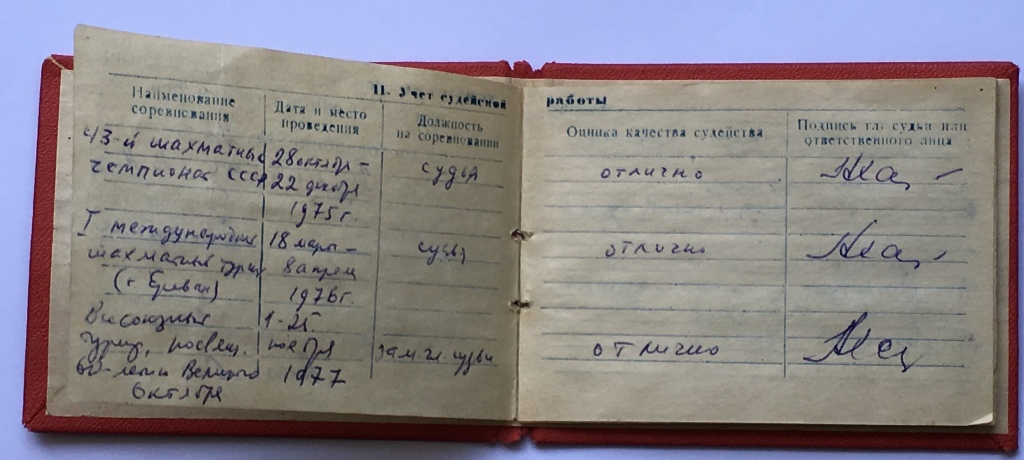 II. Учет судейской работы
Наименование соревнования
Дата и место проведения
Должность на соревновании
Оценка качества судейства
Подпись гл. судьи или ответственного лица
43-й шахматный 28 октябр –
чемпионат СССР 22 декабря
1975 г.
судья
отлично
I международный 18 марта –
шахматный турнир 8 апреля
(г. Ереван) 1976 г.
судья
отлично
Всесоюзный 1-25
турнир, посвящ. ноября
60-летию Великого 1977
Октября
зам. гл. судьи
отлично